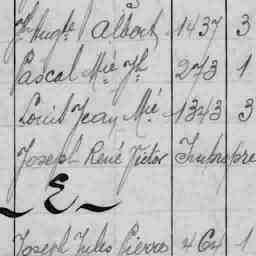 Jh Augte Albert 1437 3
Pascal Mié Jh 273 1
Louis Jean Mié 1343 3
Joseph René Victor Impropre
~ E ~
Joseph Jules Pierre 464 1